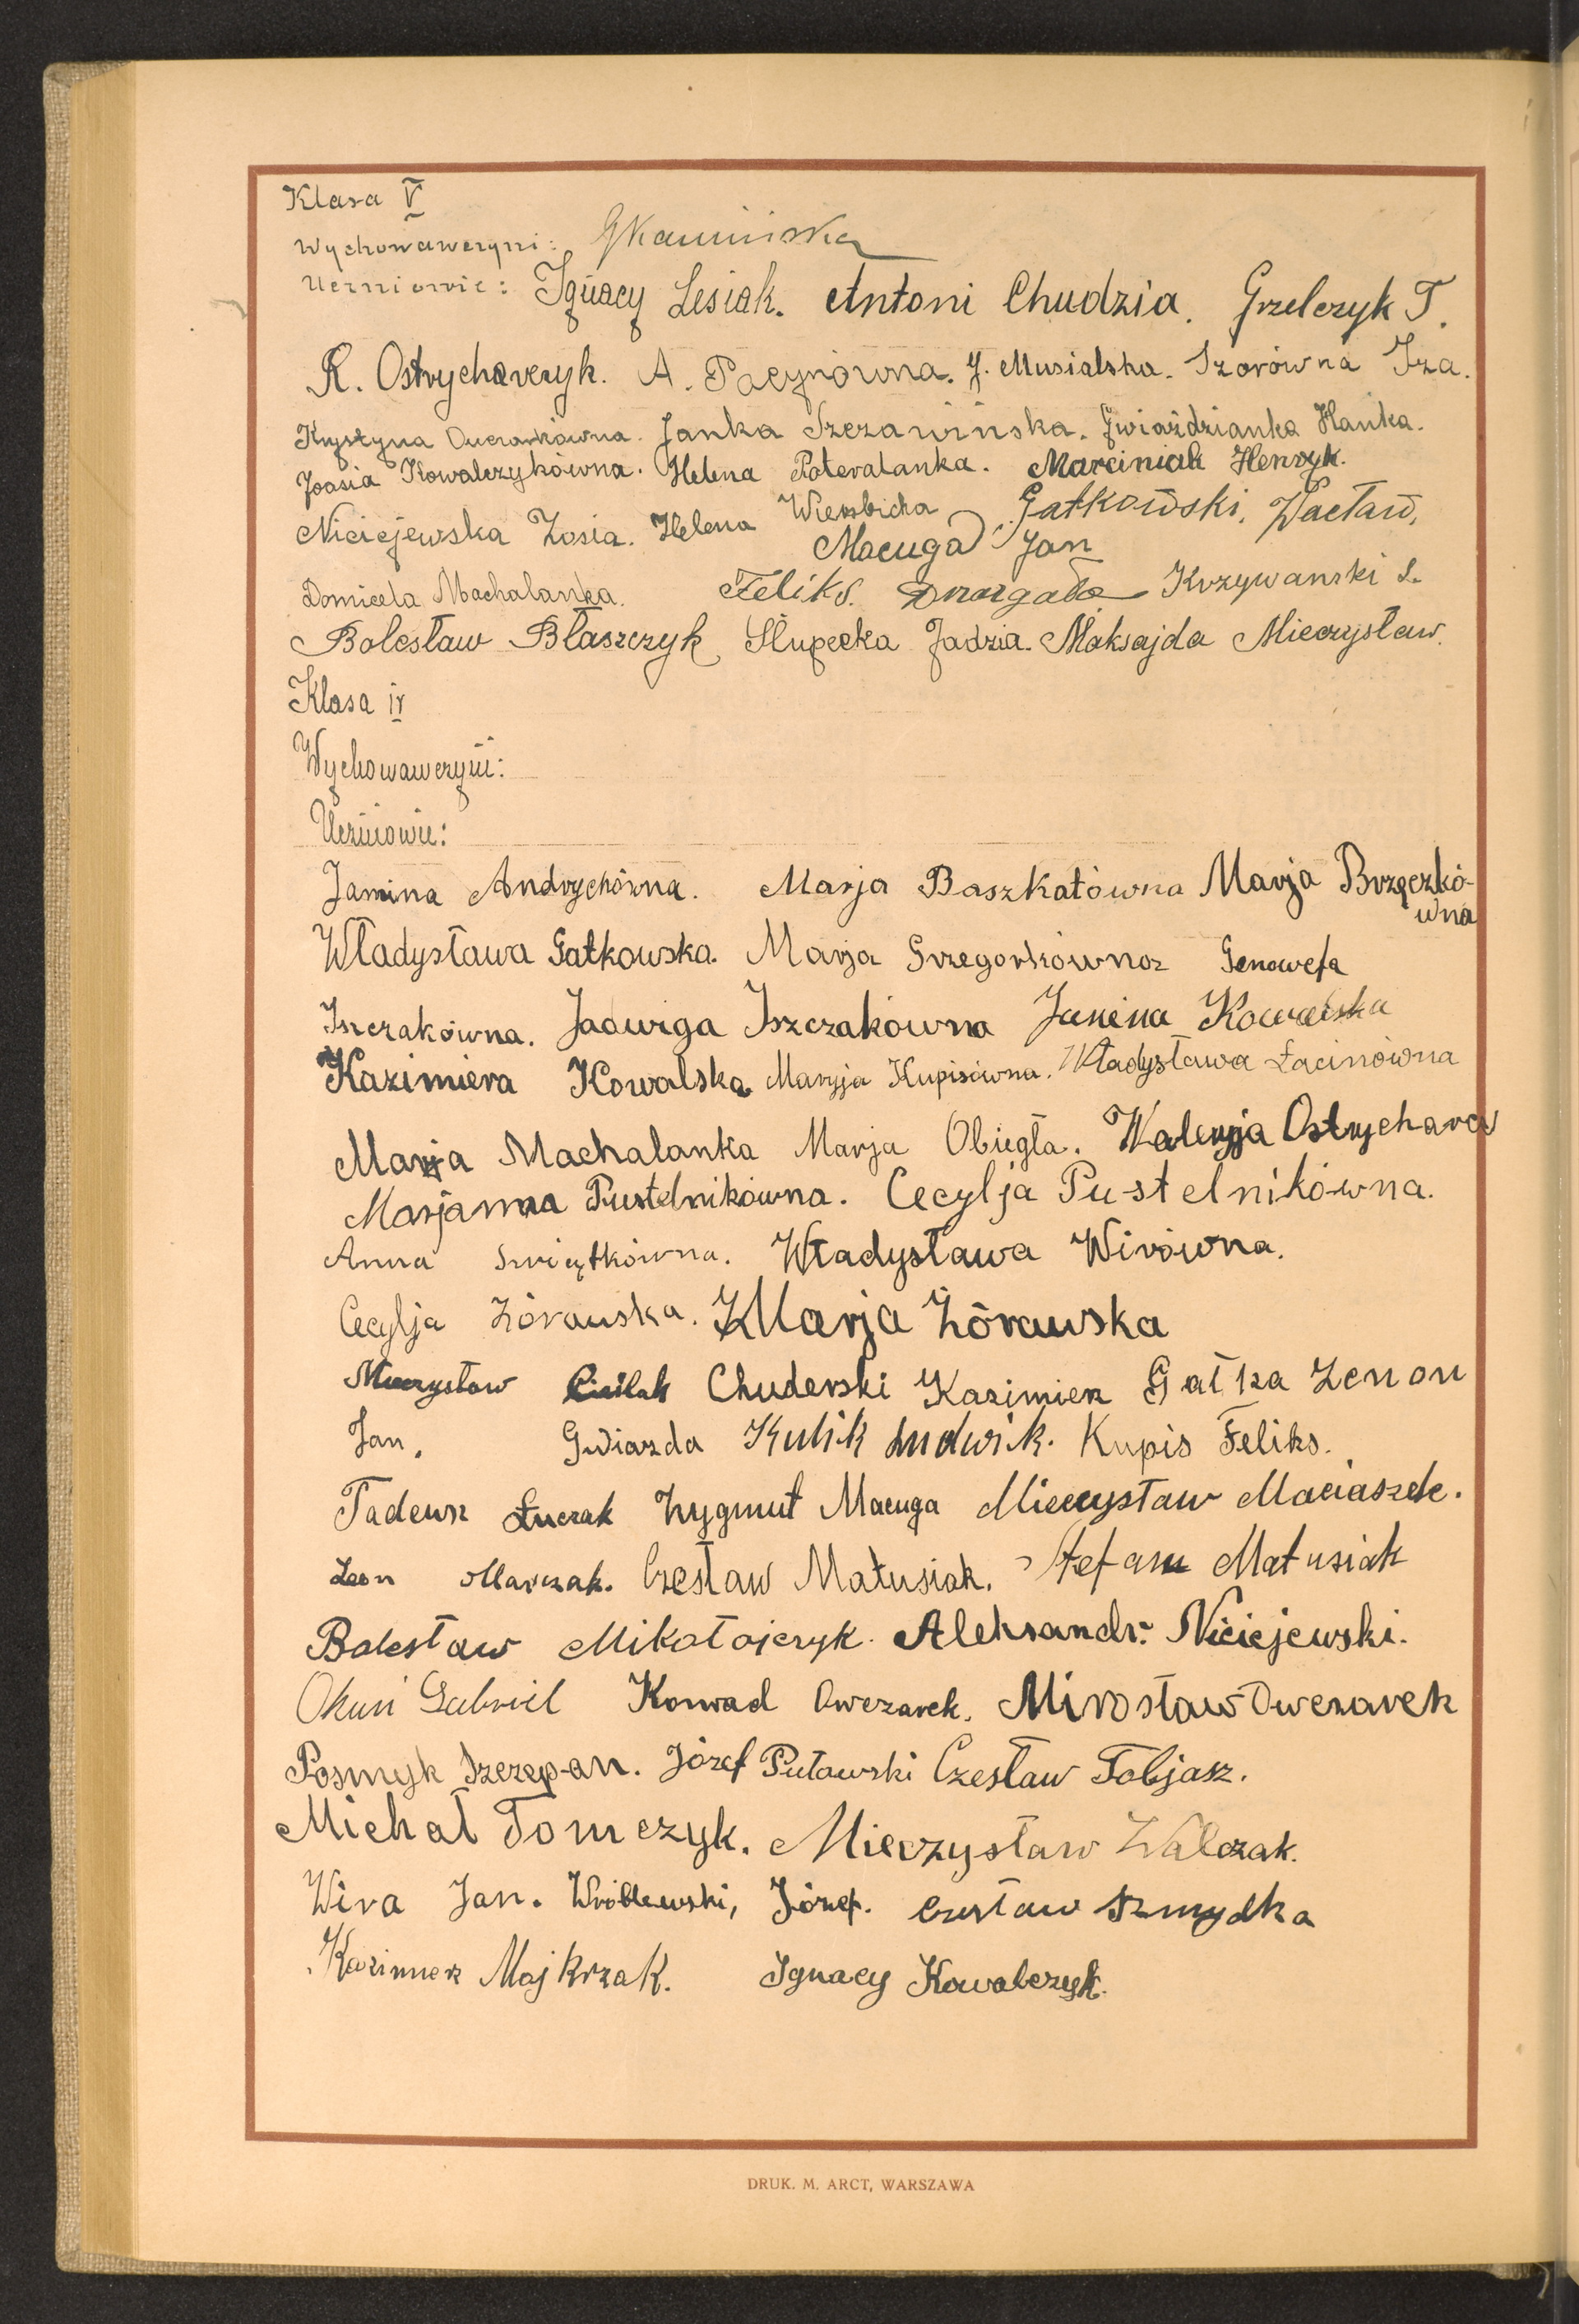 Klasa V
Wychowawczyni: GKamińska
Uczniowie: Ignacy Lesiak. Antoni Chudzia. Grzelczyk T.
R. Ostrycharczyk. A. Pacynówna. J. Musialska. Izorówna Iza.
Krystyna Owczarkówna. Janka Szczawińska. Gwiaździanka Hanka.
Joasia Kowalczykówna. Helena Poteralanka. Marciniak Henryk.
Niciejewska Zosia. Helena Wierzbicka Gatkowski, Wacław,
Macuga Jan
Domicela Machalanka. Feliks. Drozgała Krzywanski S.
Bolesław Błaszczyk Słupecka Jadzia. Maksajda Mieczysław.
Klasa IV
Wychowawczyni:
Uczniowie:
Janina Andrychówna. Marja Baszkatówna Marja Brzęczkó-
wna
Władysława Gatkowska. Marja Grzegorkówna Genowefa
Iszczakówna. Jadwiga Iszczakówna Janina Kowalska
Kazimiera Kowalska Maryja Kupisówna. Władysława Łacinówna
Marja Machalanka Marja Obiegła. Walerja Ostrycharz
Marjanna Pustelnikówna. Cecylja Pustelnikówna.
Anna Świątkówna. Władysława Wirówna.
Cecylja Żórawska. Marja Żórawska
Mieczysław Chuderski Kazimierz Gałka Zenon
Jan, Gwiazda Kulik Ludwik. Kupis Feliks.
Tadeusz Łuczak Zygmut Macuga Mieczysław Maciaszek.
Leon Marczak. Czesław Matusiak. Stefan Matusiak
Bolesław Mikołajczyk. Aleksandr. Niciejewski.
Okuń Gabriel Konrad Owczarek. Mirosław Owczarek
Posmyk Szczepan. Józef Puławski Czesław Tobjasz.
Michał Tomczyk. Mieczysław Walczak.
Wira Jan. Wróblewski, Józef. Czesław Szmydka
Kazimierz Majkrzak. Ignacy Kowalczyk.
DRUK. M. ARCT, WARSZAWA